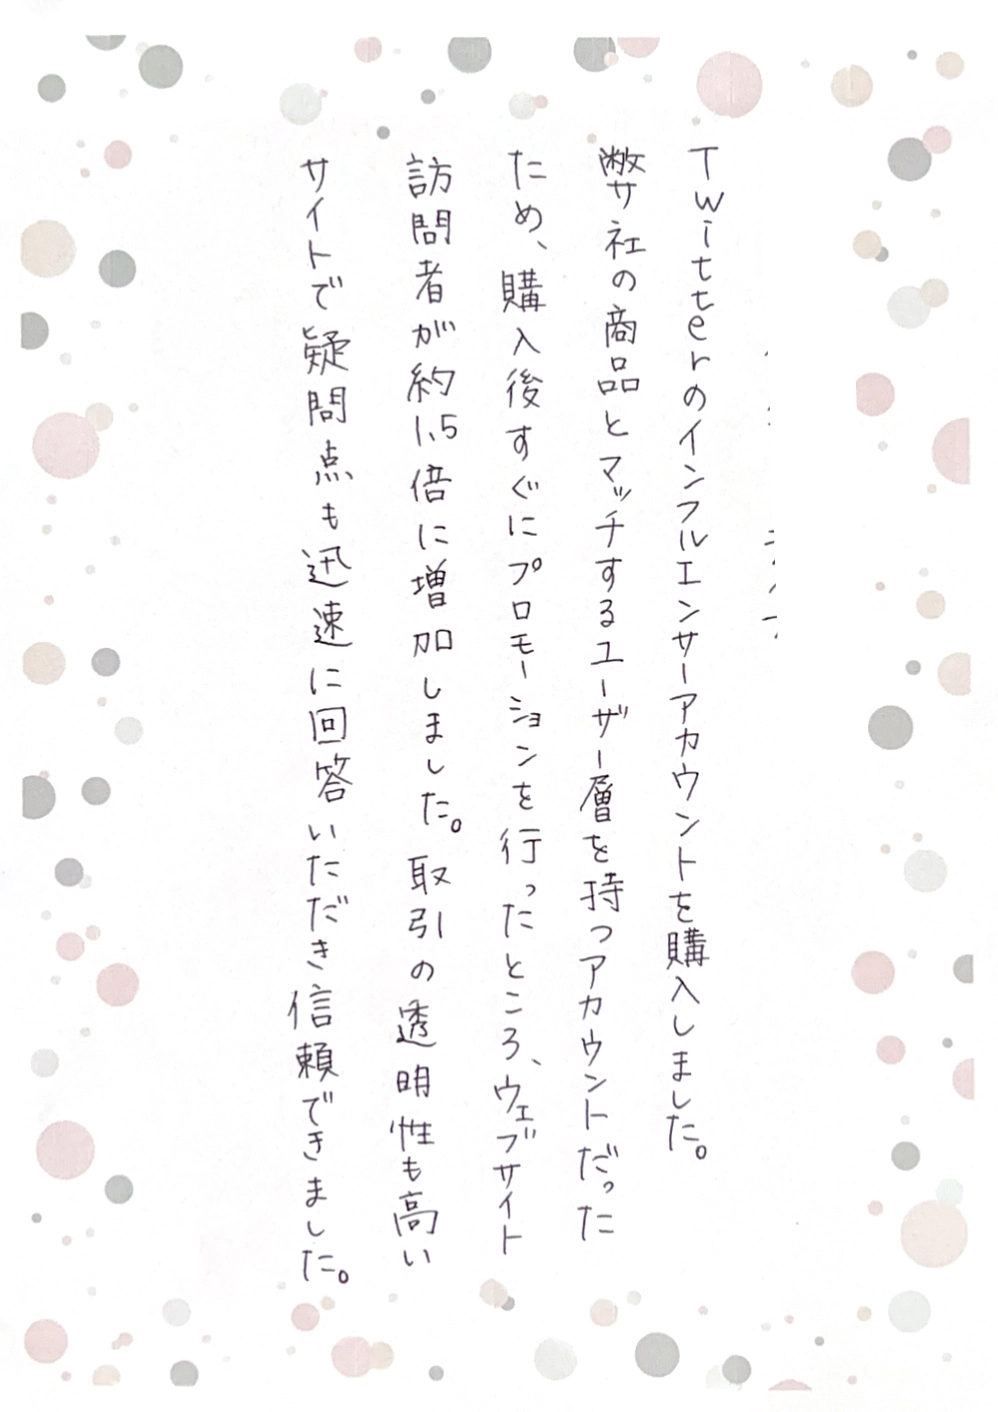 Twitterのインフルエンサーアカウントを購入しました。
弊社の商品とマッチするユーザー層を持つアカウントだった
ため、購入後すぐにプロモーションを行ったところ、ウェブサイト
訪問者が約1.5倍に増加しました。取引の透明性も高い
サイトで疑問点も迅速に回答いただき信頼できました。